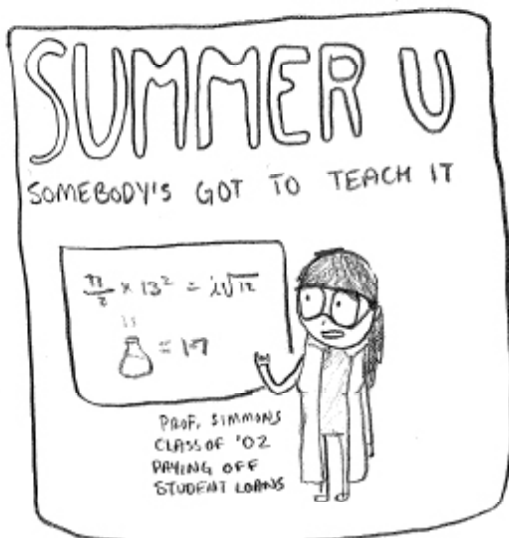 SUMMER U
SOMEBODY'S GOT TO TEACH IT
× 13² = i√12
= 17
PROF. SIMMONS
CLASS OF '02
PAYING OFF
STUDENT LOANS